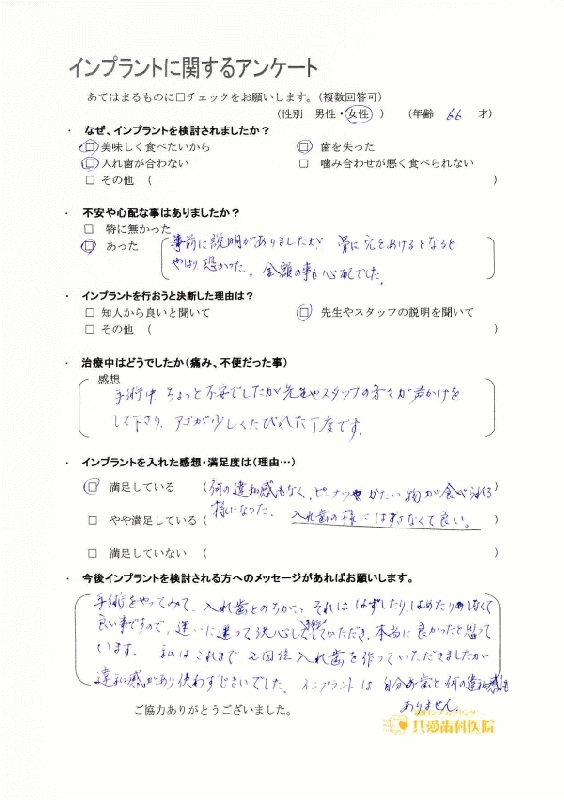 インプラントに関するアンケート
あてはまるものに□チェックをお願いします。(複数回答可)
(性別 男性・女性) (年齢 66 才)
・ なぜ、インプラントを検討されましたか?
□ 美味しく食べたいから □ 歯を失った
□ 入れ歯が合わない □ 噛み合わせが悪く食べられない
□ その他 ( )
・ 不安や心配な事はありましたか?
□ 特に無かった
□ あった 事前に説明がありましたが 骨に穴をあけるとなると
やはり恐かった。金額の事も心配でした。
・ インプラントを行おうと決断した理由は?
□ 知人から良いと聞いて □ 先生やスタッフの説明を聞いて
□ その他 ( )
・ 治療中はどうでしたか(痛み、不便だった事)
感想
手術中、ちょっと不安でしたが先生やスタッフの方々が声かけを
して下さり、アゴが少しくたびれた丁度です。
・ インプラントを入れた感想・満足度は(理由…)
□ 満足している (何の違和感もなく、ピーナツやかたい物が食べられる
様になった。入れ歯の様にはずさなくて良い。
□ やや満足している (
□ 満足していない ( )
・ 今後インプラントを検討される方へのメッセージがあればお願いします。
手術をやってみて、入れ歯とのちがい、それは はずしたりはめたりしなくて
良い事ですので、迷いに迷って決心して いただき、本当に良かったと思って
います。私はこれまで 2回程入れ歯を作っていただきましたが
違和感があり使わずじまいでした。インプラントは自分の歯と何の違和感も
ありません。
ご協力ありがとうございました。
共愛歯科医院